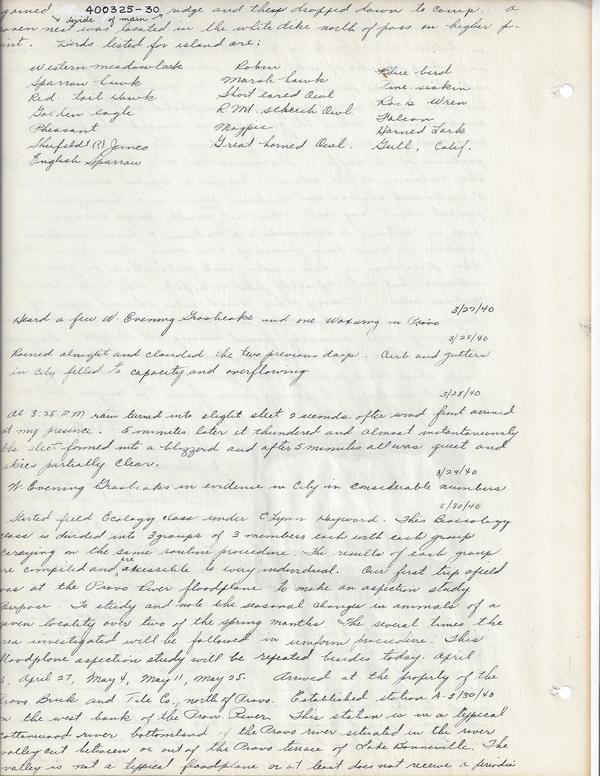 gained 400325-30 ridge and then dropped down to camp. A
divide of main
raven nest was located in the white dike north of pass on higher p-
int. Birds listed for island are:
Western meadowlark Robin Blue bird
Sparrow hawk Marsh hawk Pine siskin
Red tail Hawk Short eared Owl Rock Wren
Golden eagle R.M. screech Owl Falcon
Pheasant Magpie Horned Lark
Shufeldt (?) Junco Great horned Owl. Gull, Calif.
English Sparrow
3/27/40
Heard a few W. Evening Grosbeaks and one Waxwing in Provo
3/28/40
Rained all night and clouded the two previous days. Curb and gutters
in city filled to capacity and overflowing.
3/28/40
At 3:25 P.M. rain turned into slight sleet 2 seconds after wind first arrived
at my presence. 5 minutes later it thundered and almost instantaneously
the sleet formed into a blizzard and after 5 minutes all was quiet and
skies partially clear.
3/29/40
W. Evening Grosbeaks in evidence in City in considerable numbers
3/30/40
Started field Ecology class under C Lynn Hayward. This Bioecology
class is divided into 3 groups of 3 members each with each group
carrying on the same routine procedure. The results of each group
are compiled and are accessible to every individual. Our first trip afield
was at the Provo River floodplane to make an aspection study
Purpose To study and note the seasonal changes in animals of a
given locality over two of the spring months. The several times the
area investigated will be followed in uniform procedure. This
floodplane aspection study will be repeated besides today. April
3, April 27, May 4, May 11, May 25. Arrived at the property of the
Provo Brick and Tile Co., north of Provo. Established station A-3/30/40
on the west bank of the Provo River. This station is in a typical
cottonwood river bottomland of the Provo river situated in the river
valley cut between or out of the Provo terrace of Lake Bonneville. The
valley is not a typical floodplane or at least does not receive a periodic